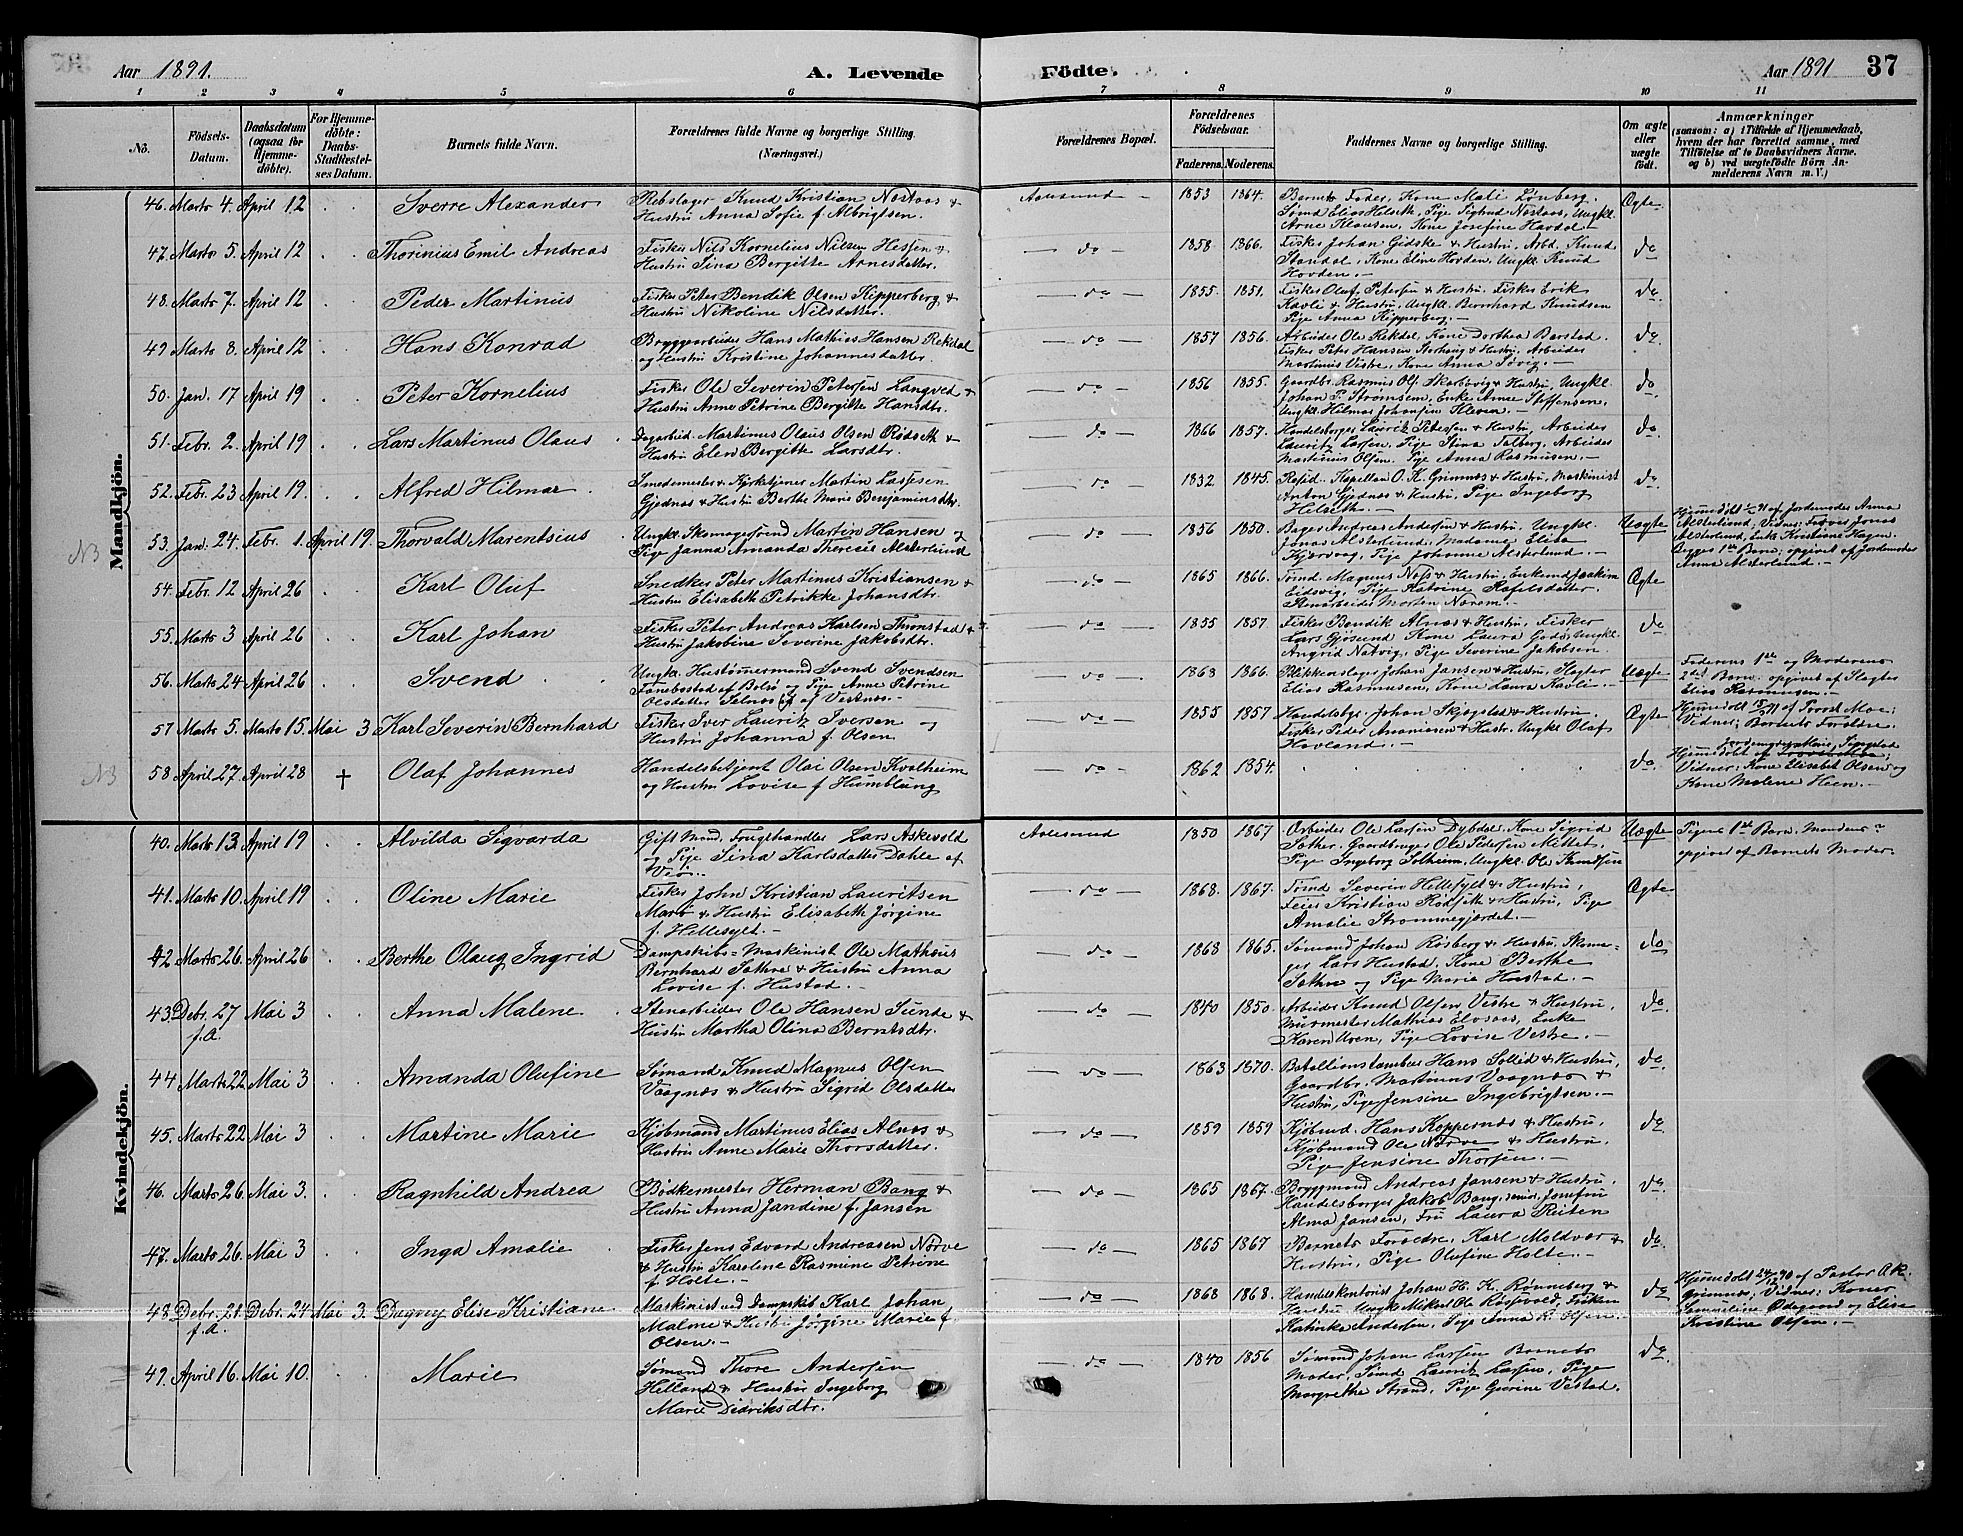 Aar 1891.
A. Levende
Födte.
Aar 1891
37
1 2 3 4 5 6 7 8 9 10 11
No.
Födsels-Datum.
Daabsdatum (ogsaa for Hjemme-döbte).
For Hjemme-döbte: Daabs-Stadfæstel-ses Datum.
Barnets fulde Navn.
Forældrenes fulde Navne og borgerlige Stilling.
(Næringsvei.)
Forældrenes Bopæl.
Forældrenes Födselsaar.
Faderens. Moderens.
Faddernes Navne og borgerlige Stilling.
Om ægte eller uægte födt.
Anmærkninger
(saasom: a) i Tilfælde af Hjemmedaab, hvem der har forrettet samme, med Tilföielse af to Daabsvidners Navne, og b) ved uægtefödte Börn Anmelderens Navn m. V.)
Mandkjön.
46. Marts 4. April 12 Sverre Alexander
Rebslager Knud Kristian Nostaas &
Hustru Anna Sofie f. Albrigtsen.
Aalesund 1853 1864.
Barnets Fader, Kone Mali Lønberg.
Sømd Elias Helseth, Pige Sigrud Nostaas, Ungkl.
Arne Klausen, Kone Josefine Havdal
Ægte
47. Marts 5. April 12 Thorinius Emil Andreas
Fisker Nils Kornelius Nilsen Hessen &
Hustru Sina Bergitte Arnesdatter.
do 1858. 1866.
Fisker Johan Gidske & Hustru, Arbd. Knud
Standal, Kone Eline Hovden, Ungkl. Knud
Hovden.
do
48. Marts 7. April 12 Peder Martinus
Fisker Peter Bendik Olsen Kipperberg &
Hustru Nikoline Nilsdatter.
do 1855. 1851.
Fisker Oluf Petersen & Hustru, Fisker Erik
Kavli & Hustru, Ungkl. Bernhard Knudsen
Pige Anna Kipperberg.
do
49 Marts 8. April 12 Hans Konrad
Bryggearbeider Hans Mathias Hansen Rekdal
og Hustru Kristine Johannesdatter.
do 1857 1856.
Arbeider Ole Rekdal, Kone Dorthea Barstad.
Fisker Peter Hansen Storhaug & Hustru, Arbeider
Martinus Vestre, Kone Anna Søvig.
do
50. Jan. 17 April 19 Peter Kornelius
Fisker Ole Severin Petersen Langved &
Hustru Anne Petrine Bergitte Hansdtr.
do 1856 1855.
Gaardbr. Rasmus Ols. Skarbøvig & Hustru, Ungkl.
Johan P. Strømsen, Enke Anne Steffensen,
Ungkl. Hilmar Johansen Kleven.
do
51. Febr. 2. April 19. Lars Martinus Olaus
Dagarbeid. Martinus Olaus Olsen Rødseth &
Hustru Elen Bergitte Larsdtr.
do 1866 1857.
Handelsborger Lauritz Petersen & Hustru, Arbeider
Lauritz Larsen, Pige Stina Solberg, Arbeider
Martinius Olsen, Pige Anna Rasmussen.
do
52. Febr. 23 April 19. Alfred Hilmar
Smedemester & Kirketjener Martin Larsen
Gjednes & Hustru Berthe Marie Benjaminsdtr.
do 1832 1845.
Resid. Kapellan O. K. Grimnes & Hustru, Maskinist
Anton Gjednes & Hustru, Pige Ingeborg
Helseth.
do
NB 53. Jan. 24. Febr. 1. April 19. Thorvald Marentsius
Ungkl. Skomagersvend Martin Hansen og
Pige Janna Amanda Therese Alsterlund
do 1856 1850.
Bager Andreas Andersen & Hustru, Ungkl.
Jonas Alsterlund, Madame Elisa
Kjervaag, Pige Johanne Alsterlund.
Uægte
Hjemmedøbt 1/2 91 af Jordemoder Anna
Alsterlund; Vidner: Farver Jonas
Alsterlund, Enke Kristiane Hagen.
Begges 1ste Barn; opgivet af Jordemoder
Anna Alsterlund.
54. Febr. 12 April 26 Karl Oluf
Snedker Peter Martinus Kristiansen &
Hustru Elisabeth Petrikke Johansdtr.
do 1865 1866.
Tømd. Magnus Næss & Hustru, Enkemd Joakim
Eidsvig, Pige Katrine Rafelsdatter.
Stenarbeider Morten Norem.
Ægte
55. Marts 3 April 26 Karl Johan
Fisker Peter Andreas Karlsen Thronstad &
Hustru Jakobine Severine Jakobsdtr.
do 1855 1857
Fisker Bendik Alnæs & Hustru, Fisker
Lars Gjøsund, Kone Laura Godø, Ungkl.
Angrid Natvig, Pige Severine Jakobsen
do
56. Marts 24 April 26 Svend
Ungkl. Hustømmermand Svend Svendsen
Tønebostad af Bolsø og Pige Anne Petrine
Olsdatter Selnes af Vestnes.
do 1868 1866.
Blikkenslager Johan Jansen & Hustru, Slagter
Elias Rasmussen, Kone Laura Kavli.
Uægte
Faderens 1ste og Moderens
2det Barn. opgivet af Slagter
Elias Rasmussen.
57 Marts 5. Marts 15. Mai 3 Karl Severin Bernhard
Fisker Iver Lauritz Iversen og
Hustru Johanna f. Olsen
do 1855 1857
Handelsbgr. Johan Skjegstad & Hustru.
Fisker Peder Ananiasen & Hustr. Ungkl Olaf
Hovland.
Ægte
Hjemmedøbt 15/3 91 af Provst Moe;
Vidner: Barnets Forældre.
NB 58 April 27. April 28 + Olaf Johannes
Handelsbetjent Olai Olsen Kvalheim
og Hustru Lovise f Humblung
do 1862 1854.
do.
Hjemmedøbt af
Vidner: Kone Elisabet Olsen og
Kone Malene Heen.
Kvindekjön.
40. Marts 13. April 19 Alvilda Sigvarda
Gift Mand, Frugthandler Lars Askevold
og Pige Sina Karlsdatter Dahle af
Viø.
Aalesund 1850 1867
Arbeider Ole Larsen Dybdal, Kone Sigrid
Sather, Gaardbruger Ole Pedersen Mittet,
Pige Ingeborg Solheim, Ungkl. Ole Knudsen
Uægte
Pigens 1ste Barn. Mandens ?
opgivet af Barnets Moder.
41. Marts 10. April 19 Oline Marie
Fisker John Kristian Lauritsen
Marø & Hustru Elisabeth Jørgine
f. Hellesylt.
do 1868. 1867.
Tømd Severin Hellesylt & Hustru,
Feier Kristian Rødseth & Hustru, Pige
Amalie Strømmegjærdet.
Ægte
42 Marts 26. April 26 Berthe Olaug Ingrid
Dampskibs-Maskinist Ole Mathæus
Bernhard Sathre & Hustru Anna
Lovise f. Hustad.
do 1868 1865.
Sømand Johan Røsberg & Hustru, Skomager
Lars Hustad, Kone Berthe
Sathre og Pige Maria Hustad.
do
43. Debr. 27 f.A. Mai 3 Anna Malene
Stenarbeider Ole Hansen Sunde &
Hustru Martha Olina Berntsdtr.
do 1840 1850.
Arbeider Knud Olsen Vestre & Hustru,
Murmester Mathias Elvsaas, Enke
Karen Uren, Pige Lovise Vestre.
do
44 Marts 22 Mai 3 Amanda Olufine
Sømand Knud Magnus Olsen
Vaagnæs & Hustru Sigrid Olsdatter
do 1863 1870.
Batallionstambur Hans Sollid & Hustru,
Gaardbr. Martinus Vaagnæs &
Hustru, Pige Jensine Ingebrigtsen.
do.
45. Marts 22 Mai 3 Martine Marie
Kjøbmand Martinus Elias Alnæs &
Hustru Anne Marie Thorsdatter.
do 1859 1859
Kjøbmd. Hans Koppernæs & Hustru,
Kjøbmand Ole Nørve & Hustru,
Pige Jensine Thorsen.
do
46. Marts 26 Mai 3. Ragnhild Andrea
Bødkermester Herman Bang &
Hustru Anna Jandine f. Jansen
do 1865 1867.
Byggmand Andreas Jansen & Hustru,
Handelsborger Jakob Bang, senior, Jomfru
Alma Jansen, Fru Laura Ruten
do
47. Marts 26. Mai 3 Inga Amalie
Fisker Jens Edvard Andreasen Nørve
& Hustru Karoline Rasmine Petrine
f. Holte.
do 1865 1867
Barnets Forældre, Karl Moldvær &
Hustru, Pige Olufine Holte.
do.
48 Debr. 21. f.A. Debr. 24 Mai 3. Dagny Elise Kristiane
Maskinist ved Dampskib Karl Johan
Malme & Hustru Jørgine Marie f.
Olsen.
do 1868 1868.
Handelskontorist Johan H. K. Rønneberg &
Hustru Ungkl Mikal Ole Røssvold, Frøken
Katinka Andersen, Pige Anna Olsen.
do
Hjemmedøbt 24/12 90 af Pastor O.K.
Grimnes; Vidner: Koner
Ødegaard og Elise
Kristine Olsen.
49. April 16. Mai 10. Marie
Sømand Thore Andersen
Helland & Hustru Ingeborg
Marie Didriksdtr.
do 1840 1856
Sømand Johan Larsen Barnets
Moder, Sømd Lauritz Larsen, Pige
Margrethe Strand, Pige Gurine Vestad.
do